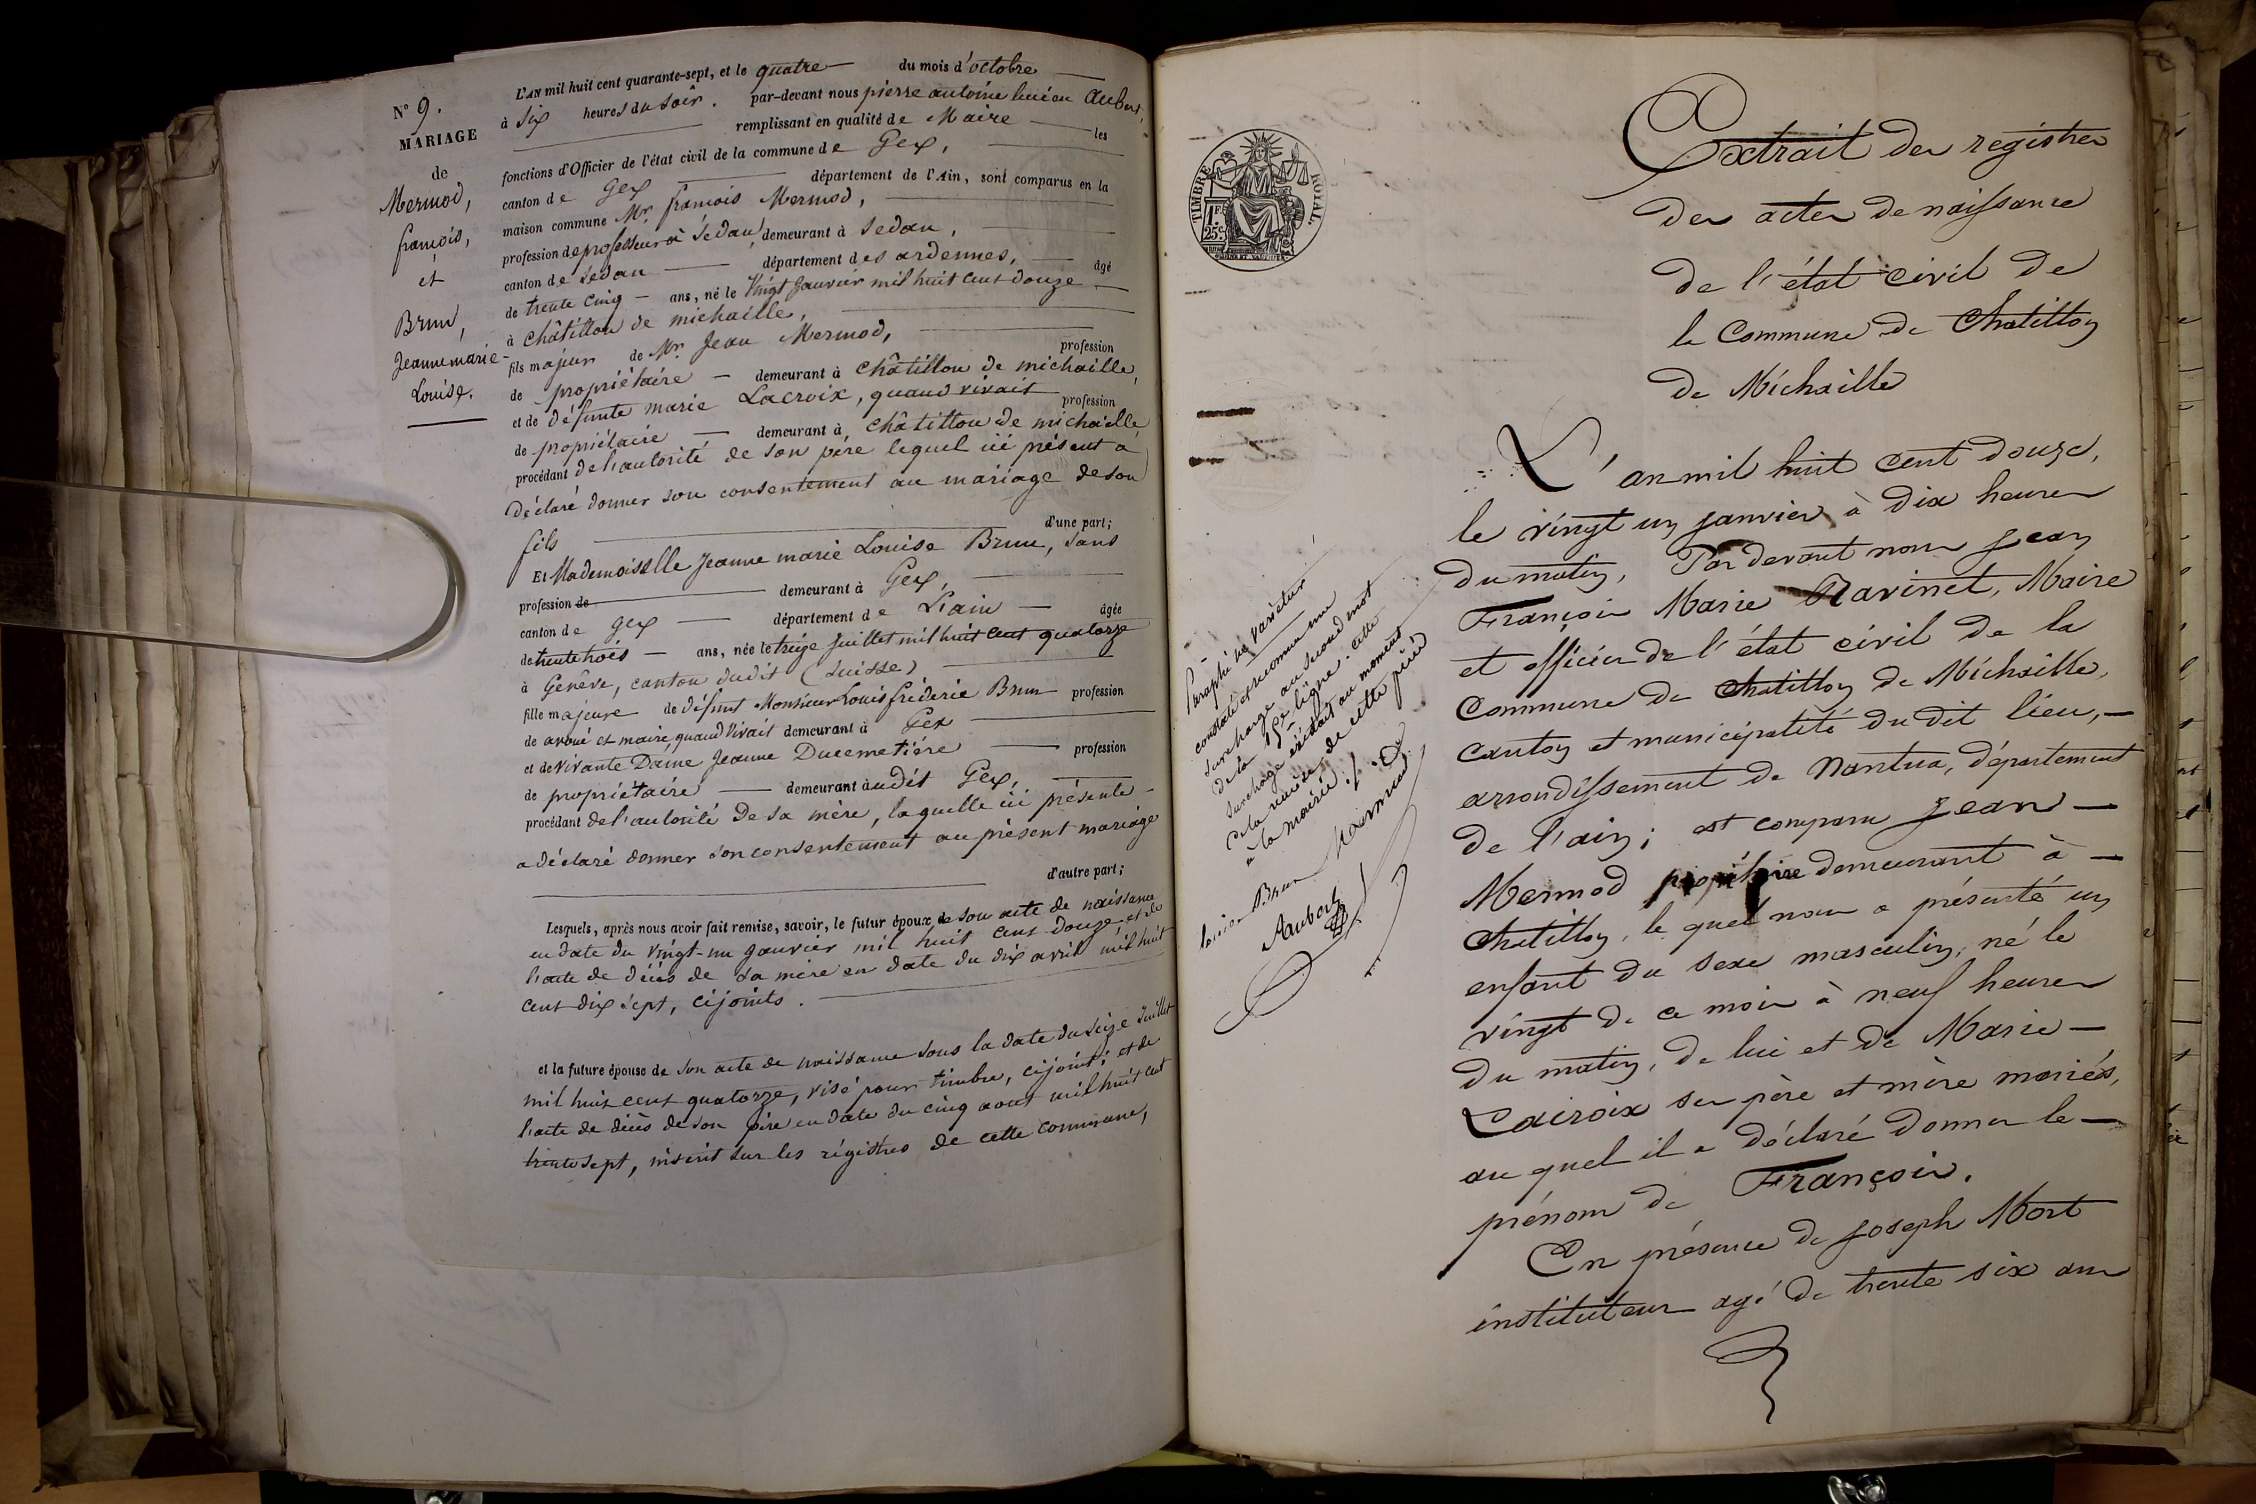 N.° 9.
MARIAGE
de
Mermod,
françois,
et
Brun,
Jeanne marie
Louise.
L'AN mil huit cent quarante-sept, et le quatre du mois d'octobre
à six heures du soir. par-devant nous pierre antoine lucien Aubert,
remplissant en qualité de Maire les
fonctions d'Officier de l'état civil de la commune de Gex,
canton de Gex département de l'Ain, sont comparus en la
maison commune Mr. françois Mermod,
profession de professeur à Sedan, demeurant à Sedan,
canton de Sedan département des ardennes, âgé
de trente cinq ans, né le Vingt Janvier mil huit cent douze
à châtillon de michaille,
fils majeur de Mr. Jean Mermod, profession
de propriétaire demeurant à châtillon de michaille,
et de défunte marie Lacroix, quand vivait profession
de propriétaire demeurant à châtillon de michaille
procédant de l'autorité de son père lequel ici présent a
déclaré donner son consentement au mariage de son
fils d'une part;
Et Mademoiselle Jeanne marie Louise Brun, sans
profession de demeurant à Gex,
canton de gex département de L'ain âgée
de trente trois ans, née le treize Juillet mil huit cent quatorze
à Genève, canton dudit (Suisse)
fille majeure de défunt Monsieur Louis fréderic Brun profession
de avoué et maire, quand vivait demeurant à Gex
et de vivante Dame Jeanne Ducemetière profession
de propriétaire demeurant audit Gex,
procédant de l'autorité de sa mère, laquelle ici présente
a déclaré donner son consentement au présent mariage
d'autre part;
Lesquels, après nous avoir fait remise, savoir, le futur époux de son acte de naissance
en date du vingt-un Janvier mil huit cent douze, et de
l'acte de décès de sa mère en date du dix avril mil huit
cent dix sept, cijoints.
et la future épouse de son acte de naissance sous la date du seize Juillet
mil huit cent quatorze, visé pour timbre, cijoint; et de
l'acte de décès de son père en date du cinq aout mil huit cent
trente sept, inscrit sur les régistres de cette commune,
TIMBRE ROYAL.
1F.
25c.
Paraphé ne varietur
constaté et reconnu une
surcharge au second mot
de la 15e ligne. cette
surcharge existait au moment
de la remise de cette pièce
à la mairie./.
louise Brun Mermod
Aubert
Extrait des registres
des actes de naissance
de l'état civil de
la Commune de Chatillon
de Michaille
L'an mil huit cent douze,
le vingt un janvier à dix heures
du matin, Par devant nous Jean
François Marie Ravinet, Maire
et officier de l'état civil de la
Commune de Chatillon de Michaille,
canton et municipalité du dit lieu,
arrondissement de Nantua, département
de l'ain; est comparu Jean
Mermod propriétaire demeurant à
Chatillon, le quel nous a présenté un
enfant du sexe masculin, né le
vingt de ce mois à neuf heures
du matin, de lui et de Marie
Lacroix ses père et mère mariés,
au quel il a déclaré donner le
prénom de François.
En présence de Joseph Mort
instituteur agé de trente six ans